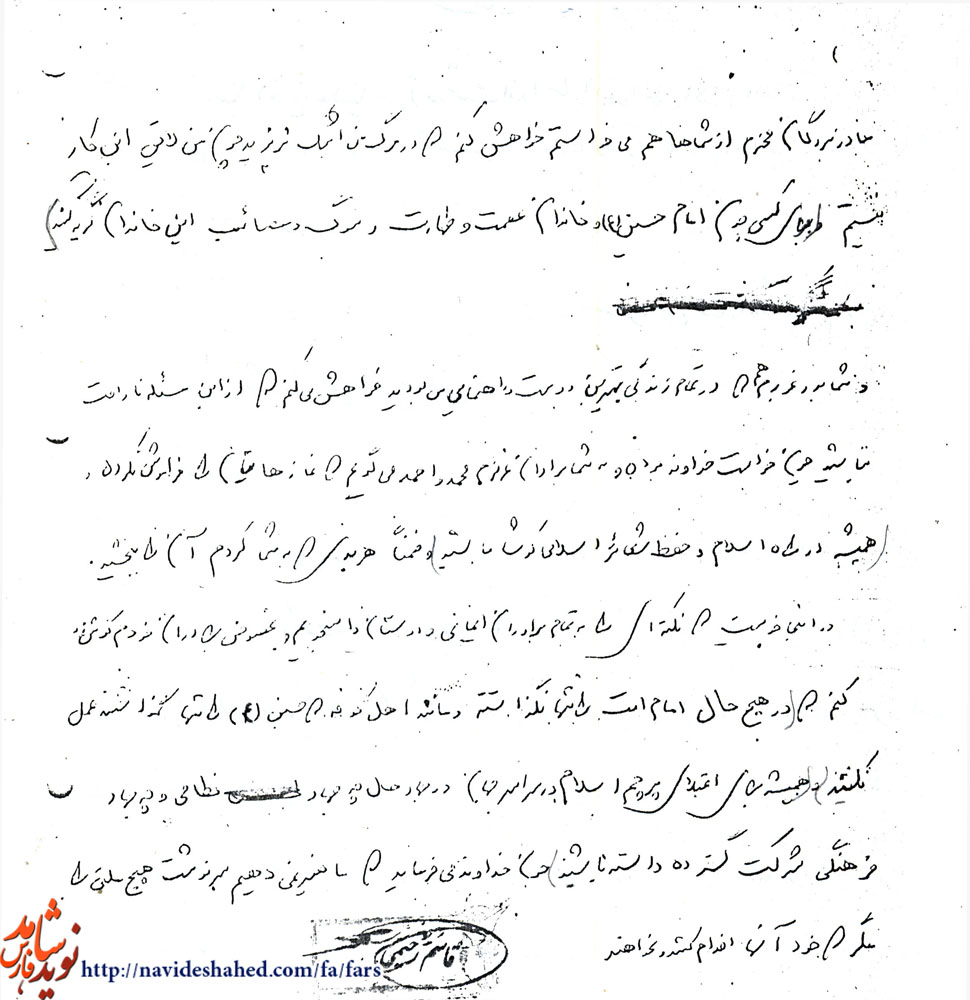 مادر بزرگان محترم از شماها هم می خواستم خواهش کنم که در مرگ من اشک نریزید چون من لایق این کار
نیستم برای کسی چون امام حسین (ع) و خاندان عصمت و طهارت و مرگ و مصائب این خاندان گریه کنید)
و شما پدر که در تمام زندگی بهترین دوست و راهنمای من بودید خواهش می کنم که از این مسئله ناراحت
نباشید چون خواست خداوند بوده و به شما برادران عزیزم محمد و احمد می گویم که نمازهایتان را فراموش نکرده و
(همیشه در راه اسلام و حفظ شعائر اسلامی کوشا باشید) و ضمناً هر بدی که به شما کردم آن را ببخشید.
در اینجا خوبست که نکته ای را به تمام برادران ایمانی و دوستان و بخصوص برادران خودم گوشزد
کنم که (در هیچ حال امام امت را تنها نگذاشته و مانند اهل کوفه که حسین (ع) را تنها گذاشتند عمل
نکنند) و (همیشه برای اعتلای پرچم اسلام در سراسر جهان در هر حال چه جهاد نظامی و چه جهاد
فرهنگی شرکت گسترده داشته باشید) چون خداوند می فرماید که ما تغییر نمی دهیم سرنوشت هیچ ملتی را
مگر که خود آنها اقدام کنند و بخواهند
قاسم رحیمی
نوید شاهد فارس
http://navideshahed.com/fa/fars